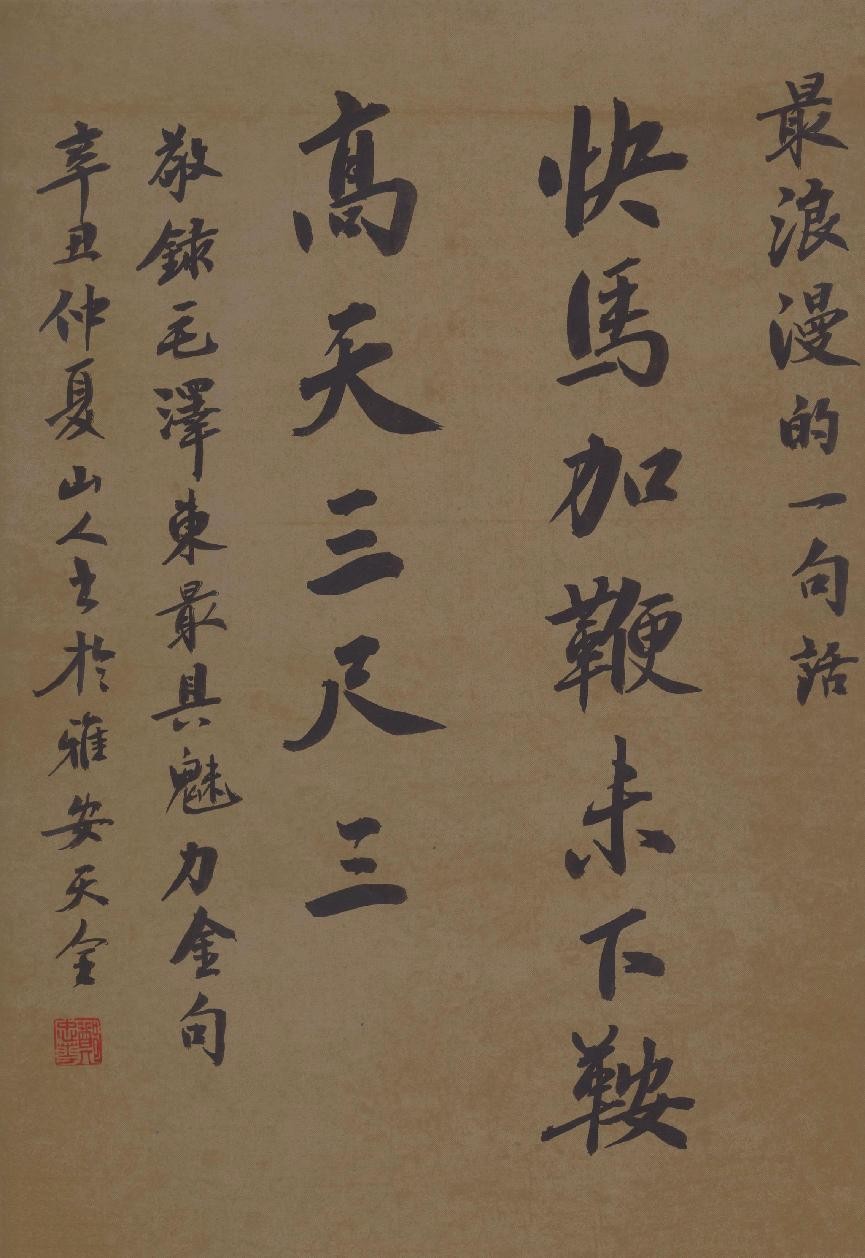 最浪漫的一句話
快馬加鞭未下鞍
高天三尺三
敬録毛澤東最具魅力金句
辛丑仲夏山人书於雅安天全